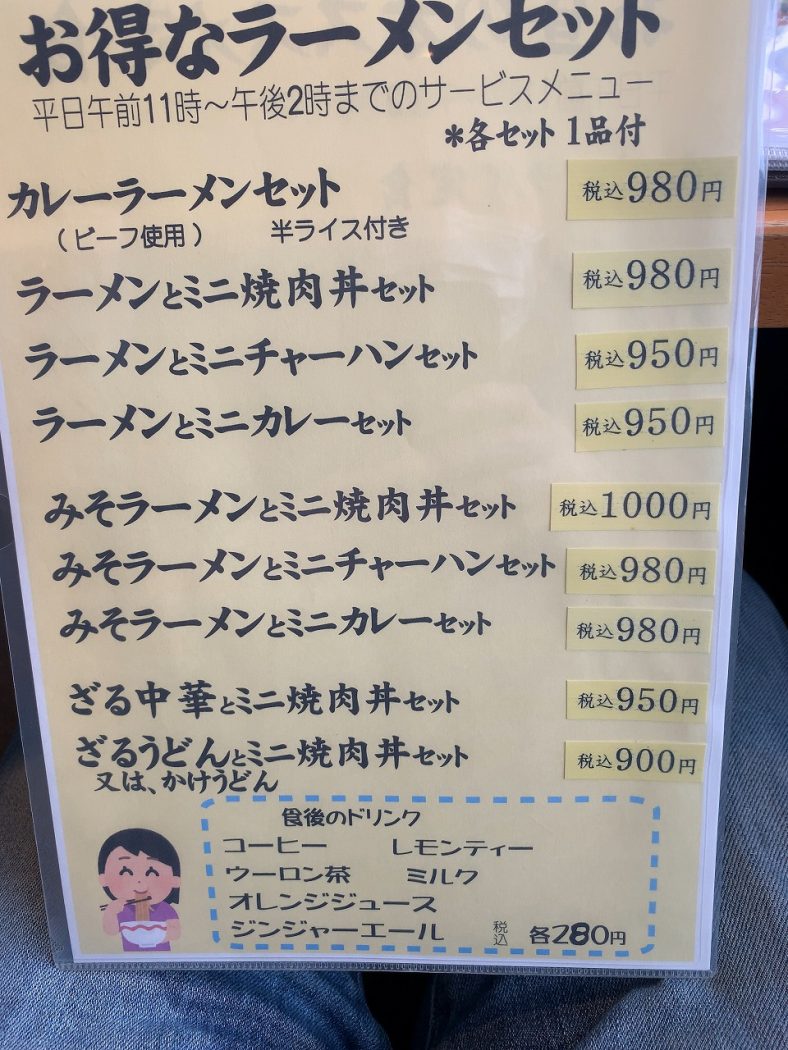 お得なラーメンセット
平日午前11時～午後2時までのサービスメニュー
＊各セット 1品付
カレーラーメンセット 税込980円
(ビーフ使用) 半ライス付き
ラーメンとミニ焼肉丼セット 税込980円
ラーメンとミニチャーハンセット 税込950円
ラーメンとミニカレーセット 税込950円
みそラーメンとミニ焼肉丼セット 税込1000円
みそラーメンとミニチャーハンセット 税込980円
みそラーメンとミニカレーセット 税込980円
ざる中華とミニ焼肉丼セット 税込950円
ざるうどんとミニ焼肉丼セット 税込900円
又は、かけうどん
食後のドリンク
コーヒー レモンティー
ウーロン茶 ミルク
オレンジジュース
ジンジャーエール 税込 各280円